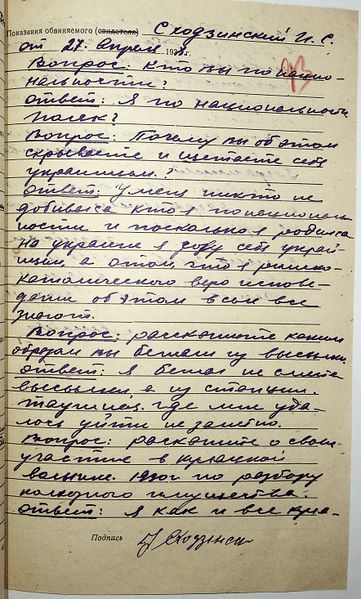 Показания обвиняемого (свидетеля) Сходзинский И. С.
от 27 апреля 193
93
Вопрос: Кто вы по нацио-
нальности?
Ответ: Я по национальности
поляк?
Вопрос: Почему вы об этом
скрываете и щетаете себя
украинцем?
Ответ: У меня никто не
добивался кто я по националь-
ности и поскольку я родился
на украине я зову себя украй-
нцем, а о том, что я римско-
католического вероиспове-
дания об этом всем все
знают.
Вопрос: расскажите каким
образом вы бежали из высылки
ответ: Я бежал не с места
высылки, а из станции
где мне уда-
лось уйти не заметно.
Вопрос: раскажите о своем
участие в кулацкой
волынке 1930 г по разбору
колхозного имущества.
ответ: Я как и все кула-
Подпись Сходзински